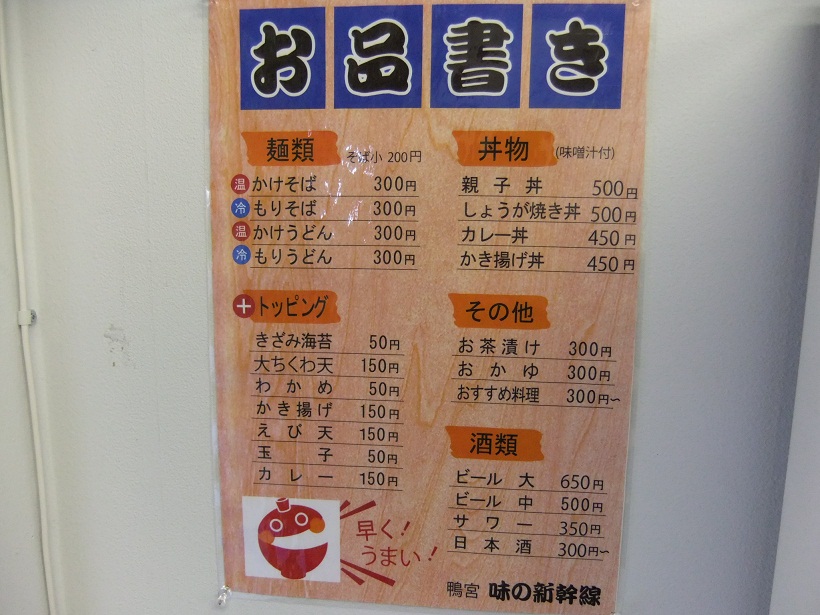 お品書き
麺類 そば小 200円
温 かけそば 300円
冷 もりそば 300円
温 かけうどん 300円
冷 もりうどん 300円
＋トッピング
きざみ海苔 50円
大ちくわ天 150円
わかめ 50円
かき揚げ 150円
えび天 150円
玉子 50円
カレー 150円
早く！
うまい！
丼物 (味噌汁付)
親子丼 500円
しょうが焼き丼 500円
カレー丼 450円
かき揚げ丼 450円
その他
お茶漬け 300円
おかゆ 300円
おすすめ料理 300円〜
酒類
ビール 大 650円
ビール 中 500円
サワー 350円
日本酒 300円〜
鴨宮 味の新幹線